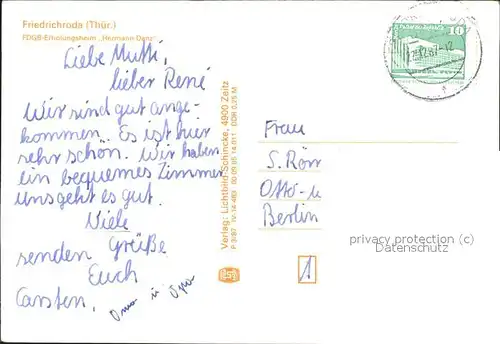 Friedrichroda (Thür.)
FDGB-Erholungsheim „Hermann Danz“
Liebe Mutti,
lieber René
Wir sind gut ange-
kommen. Es ist hier
sehr schön. Wir haben
ein bequemes Zimmer
uns geht es gut.
Viele
Grüße
senden
Euch
Carsten,
Oma u. Opa
Verlag: Lichtbild-Schincke, 4900 Zeitz
P 3/87 IV-14-483 DDR 0,25 M
10
Frau
S. Rörr
Otto-u
Berlin
privacy protection (c)
Datenschutz
1